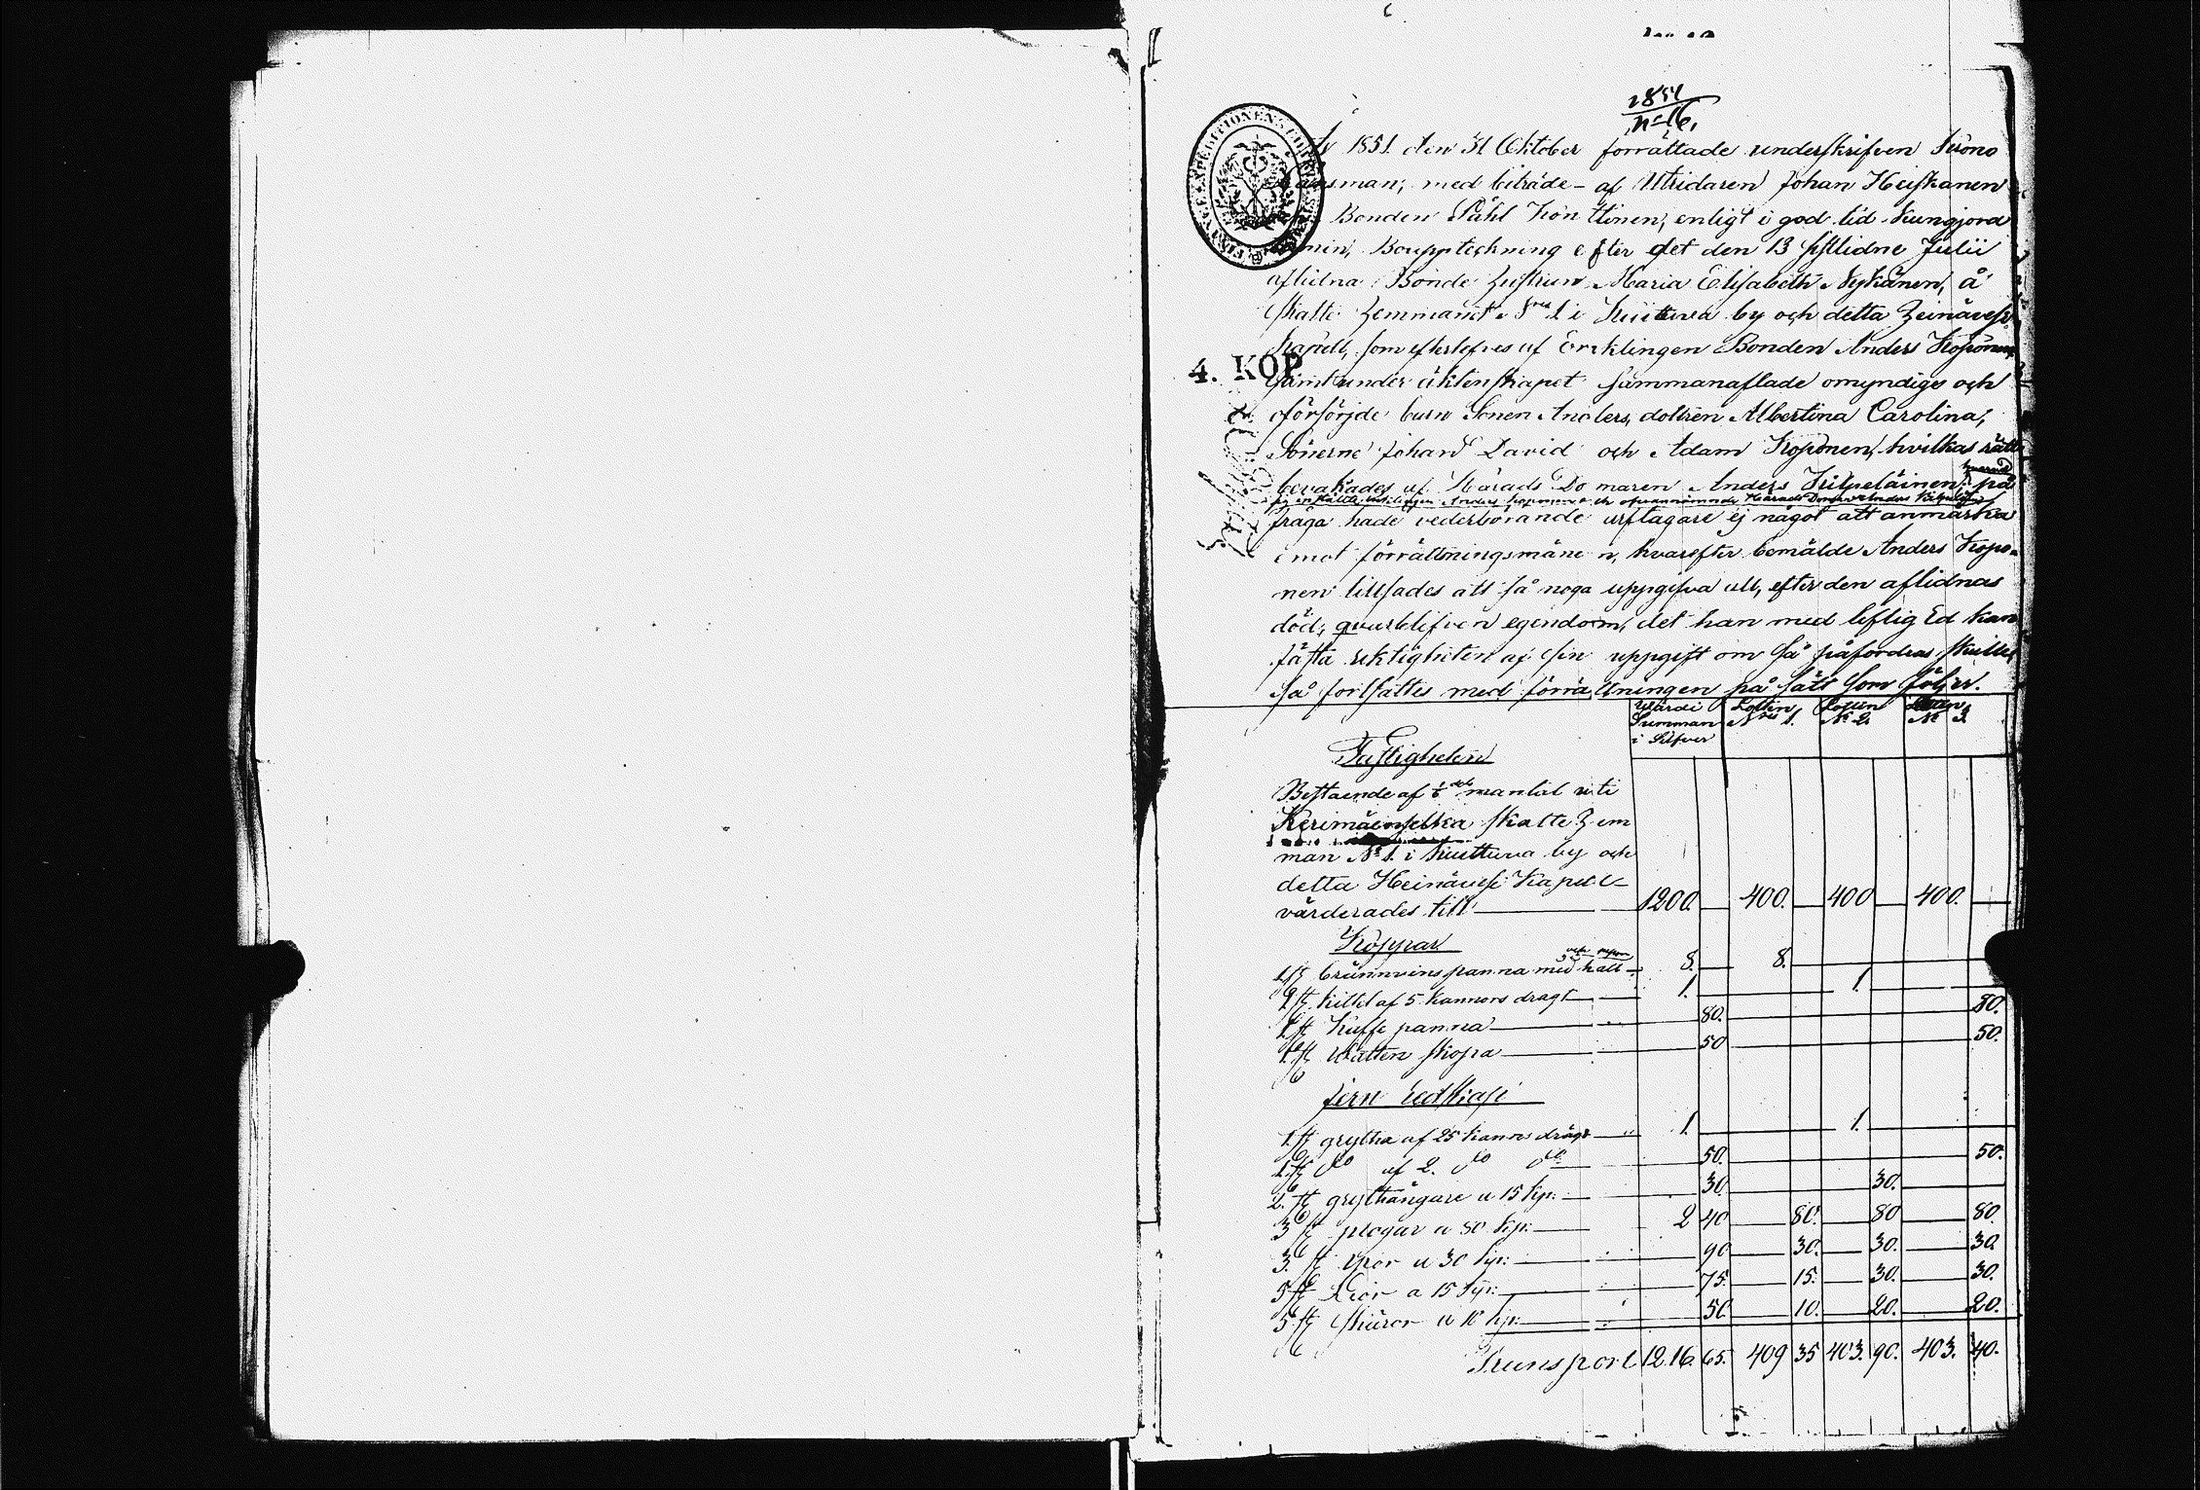 1851
N:o 16.
År 1851 den 31 Oktober förrättade underskrifven Krono
länsman, med biträde af Utridaren Johan Heiskanen
och Bonden Påhl Konttinen, enligt i god tid kungjord
termin, Bouppteckning efter det den 13 sistlidne Julii
aflidna Bonde hustrun Maria Elisabeth Nykänen, å
Skatte hemmanet N:ro 1 i Kuittuva by och detta Heinävesi
Kapell, som efterlefves af Encklingen Bonden Anders Koponen,
samt under äktenskapet sammanaflade omyndige och
oförsörjde barn Sonen Anders, dottren Albertina Carolina,
Sönerne Johan David och Adam Koponen, hvilkas rätt
bevakades af Härads Domaren Anders Kilpeläinen; på
4. KOP.
fråga hade vederbörande arftagare ej något att anmärka
emot förrättningsmännen, hvarefter bemälde Anders Kopo-
nen tillsades att så noga uppgifva all, efter den aflidnas
död, qvarblifven egendom, det han med liflig Ed kan
fästa riktigheten af sin uppgift om så påfordras skulle,
så fortsattes med förrättningen på sätt som följer.
Wärdi Summan i Silfver Lotten N:ro 1. Lotten N:o 2. Lotten N:o 3.
Fastigheten
Bestående af 1/6 dels mantal uti
Kerimäenselkä skatte Hem
man N:o 1. i Kuittuva by och
detta Heinävesi Kapell
värderades till 1200. 400. 400 400.
Koppar
1 st brännvins panna med hatt 8. 8.
1 st kittel af 5 kannors drägt 1. 1.
1 st Kaffe panna 80. 80.
1 st Watten skopa 50 50.
Jern Redskap
1 st gryta af 25 kannors drägt 1. 1.
1 st d:o af 2. d:o d:o 50. 50.
2. st grythängare a 15 kp: 30. 30.
3 st plogar a 80 kp: 2 40 80. 80 80.
3. st yxor a 30 kp: 90 30. 30. 30.
5 st Liar a 15 kp: 75. 15. 30. 30.
5 st skäror a 10 kp: 50 10. 20. 20.
Transport 1216. 65. 409 35 403. 90. 403. 40.